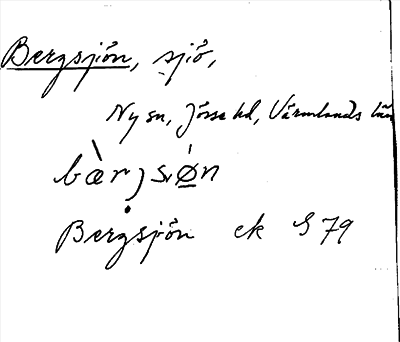 Bergsjön, sjö,
Ny sn, Jösse hd, Värmlands län
Bergsjön ek S 79